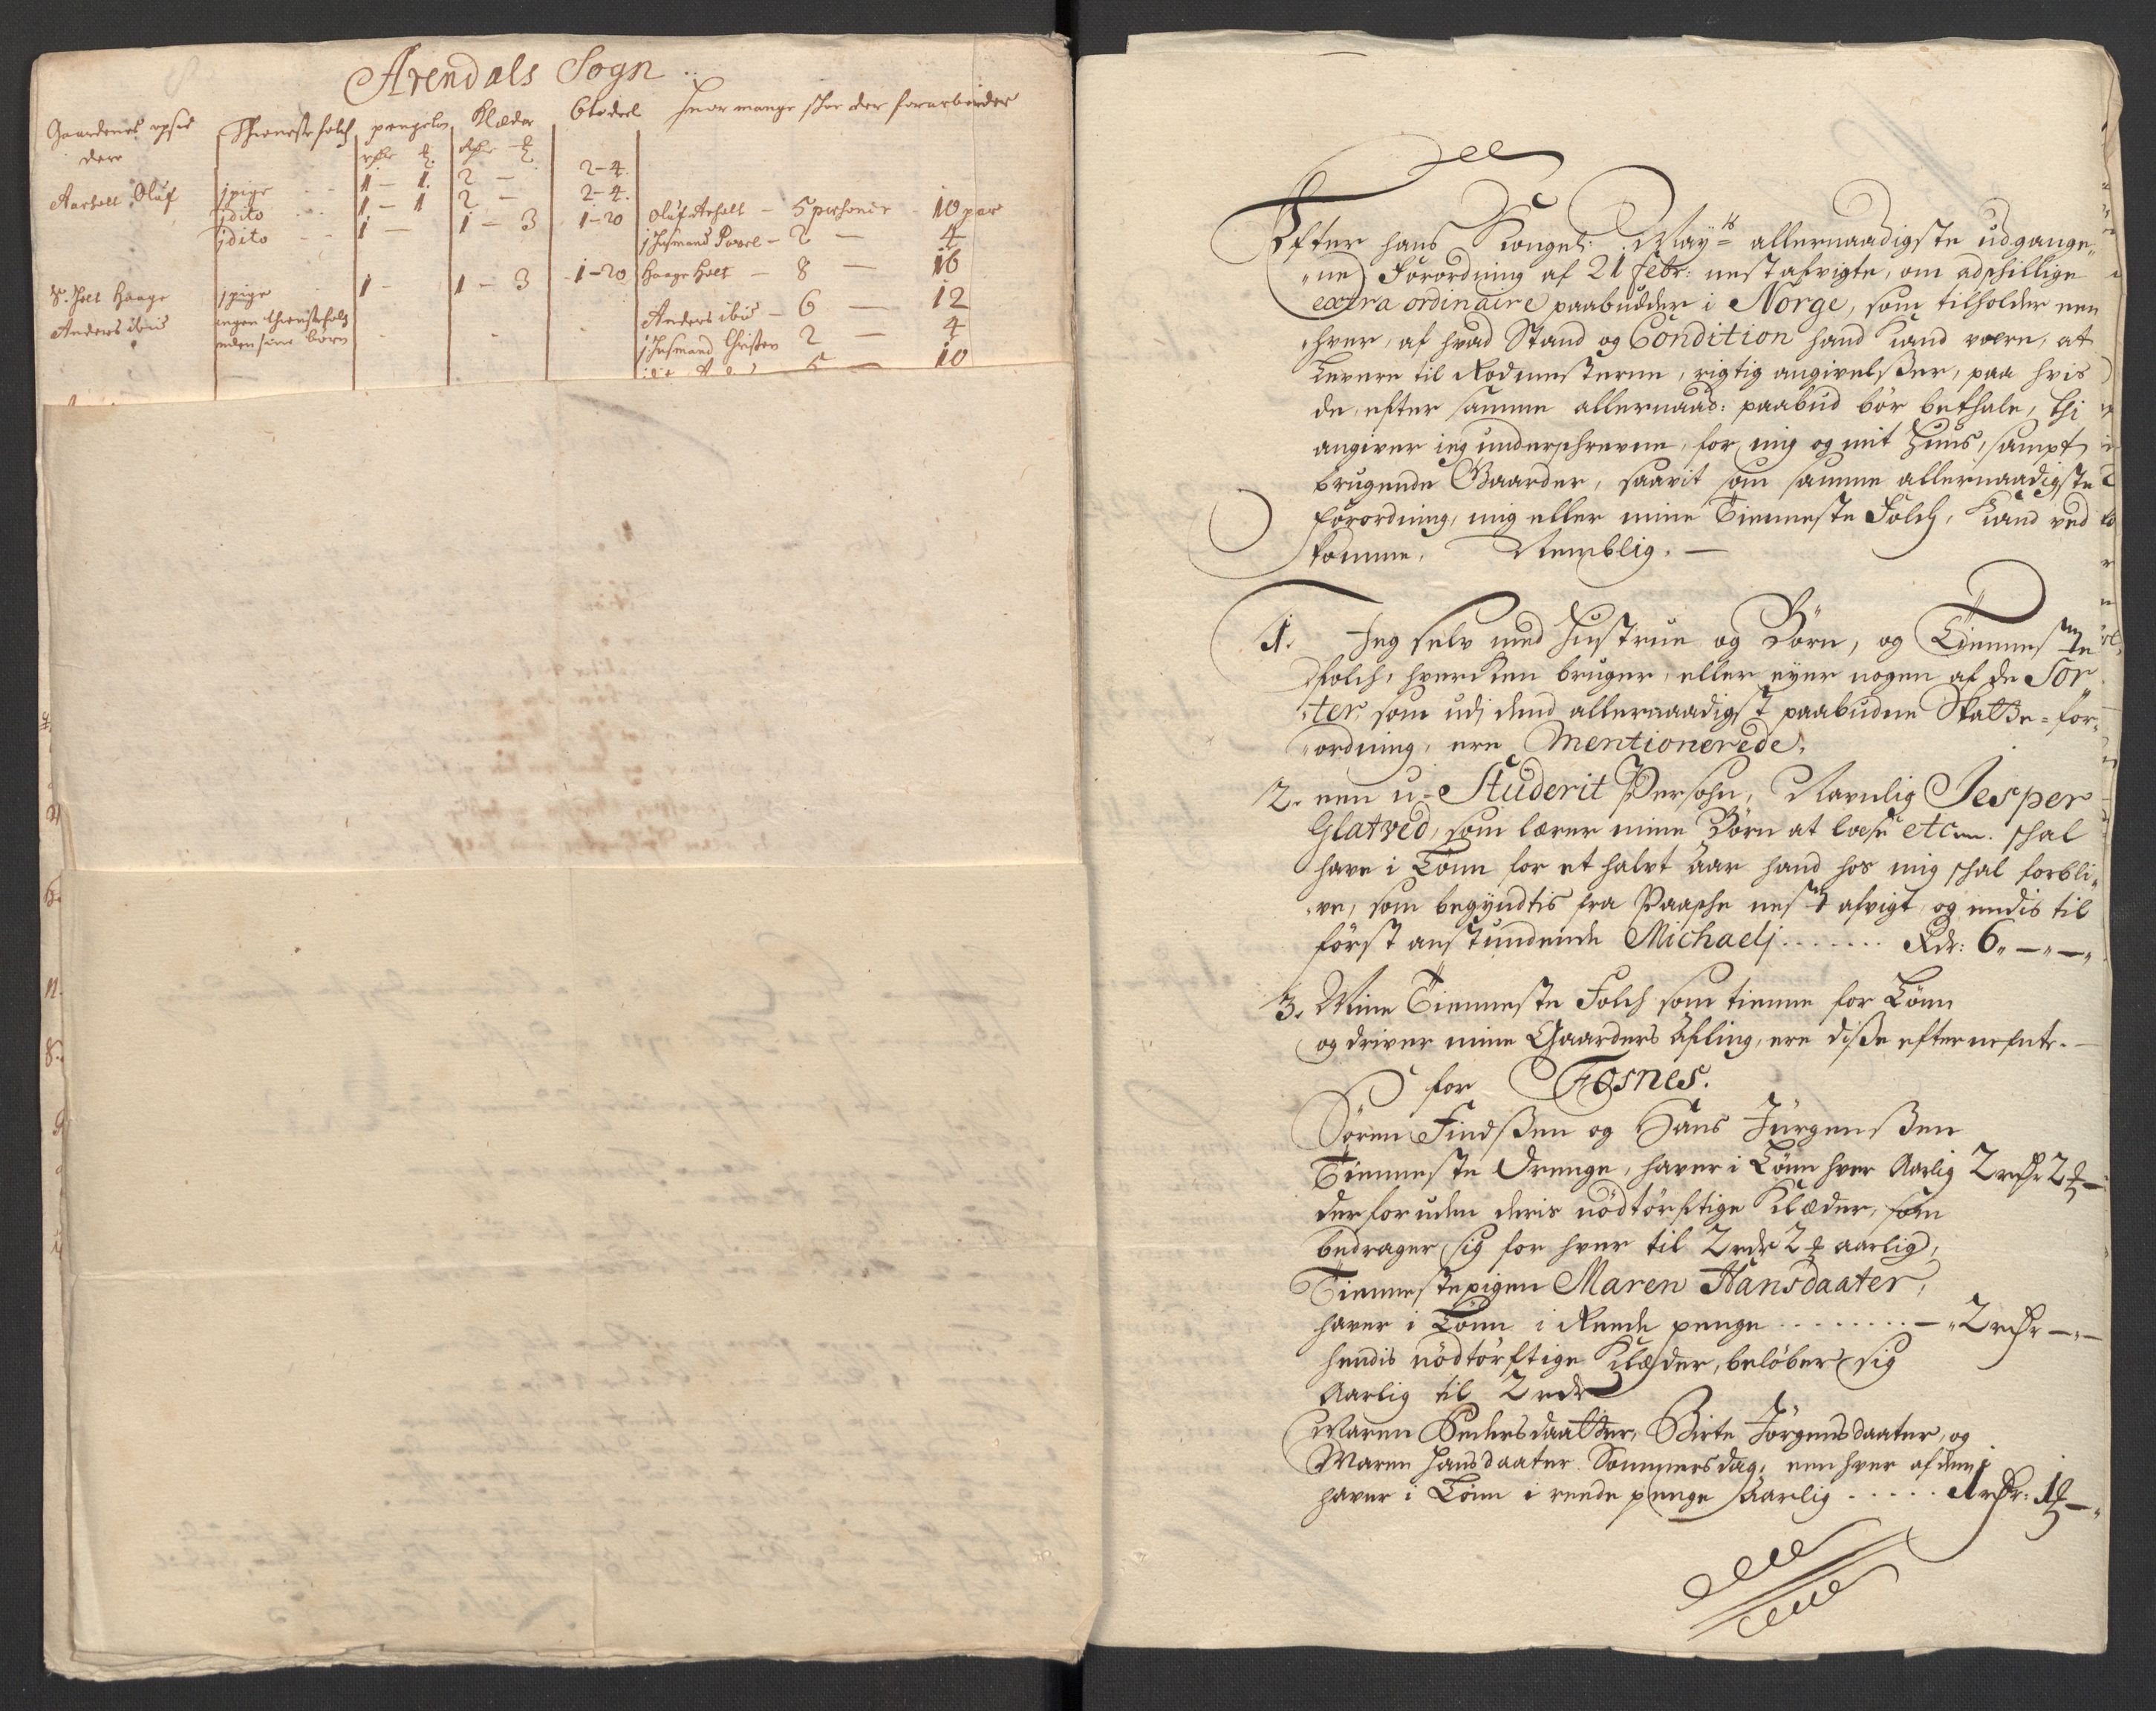 Arendals Sogn
Gaardenes opsid dere | Thienistefolch | pengeløn | Klæder | Clodeel | Huor mange schoe der forarbeides
rdr ꝑ | rdr ꝑ
Aarholt Oluf | 1 pige | 1 - 1 | 2 - | 2 - 4
1 dito | 1 - 1 | 2 - | 2 - 4 | Oluf Arholt - 5 personer - 10 par
1 dito | 1 - | 1 - 3 | 1 - 20 | 1 Husmand Povel - 2 - 4
Holt Haage | 1 pige | 1 - | 1 - 3 | 1 - 20 | Haage Holt - 8 - 16
Anders ibid | ingen thienistefolch | Anders ibid - 6 - 12
uden sine børn | 1 Husmand Christen 2 - 4
5 - 10
Efter hans Kongel: May:ts allernaadigste udgange„
„ne Forordning af 21 Febr: nest afvigte, om adschillige
extra ordinaire paabudder i Norge, som tilholder een
hver, af hvad Stand og Condition hand kand være, at
Levere til Rodmesterne, rigtig angivelßer, paa hvis
de, efter samme allernaad: paabud bør bethale, Thi
angiver ieg underschrevne, for mig og mit Huus, sampt
brugende Gaarder, saavit som samme allernaadigste
forordning, mig eller mine Tienneste Folch, kand ved
komme. Nemblig.
1. Jeg selv med Hustrue og Börn, og Tienneste
folch, hverken bruger, eller eyer nogen af de Sor
ter, som udj dend allernaadigst paabudne Skatte-for„
„ordning, ere Mentionerede.
2. een u-Studerit Persohn, Navnlig Jesper
Glatved, som lærer mine Börn at læse etc. schal
have i Lönn for et halvt Aar hand hos mig schal forbli„
„ve, som begyndtis fra Paasche nest afvigt, og endis til
först anstundende Michaelj ....... Rdr: 6„ — „ — „
3. Mine Tienneste Folch som tienne for Lönn
og driver mine Gaarders Afling, ere disse efternefnte.
for Fosnes.
Sören Findßen og Hans Jürgenßen
Tienneste Drenge, haver i Lönn hver Aarlig 2 rdr 2 ꝑ —
derforuden deris nödtörftige Klæder, som
bedrager sig for hver til 2 rdr 2 ꝑ aarlig,
Tiennestepigen Maren Hansdaater,
haver i Lönn i Reede penge ........ — „ 2 rdr — „ —
hendis nödtörftige Klæder, belöber sig
Aarlig til 2 rdr
Maren Pedersdaatter, Birte Jörgensdaater, og
Maren Hansdaater Sommersdag, een hver af dem
haver i Lönn i reede penge Aarlig ..... 1 rdr: 1 ꝑ — „